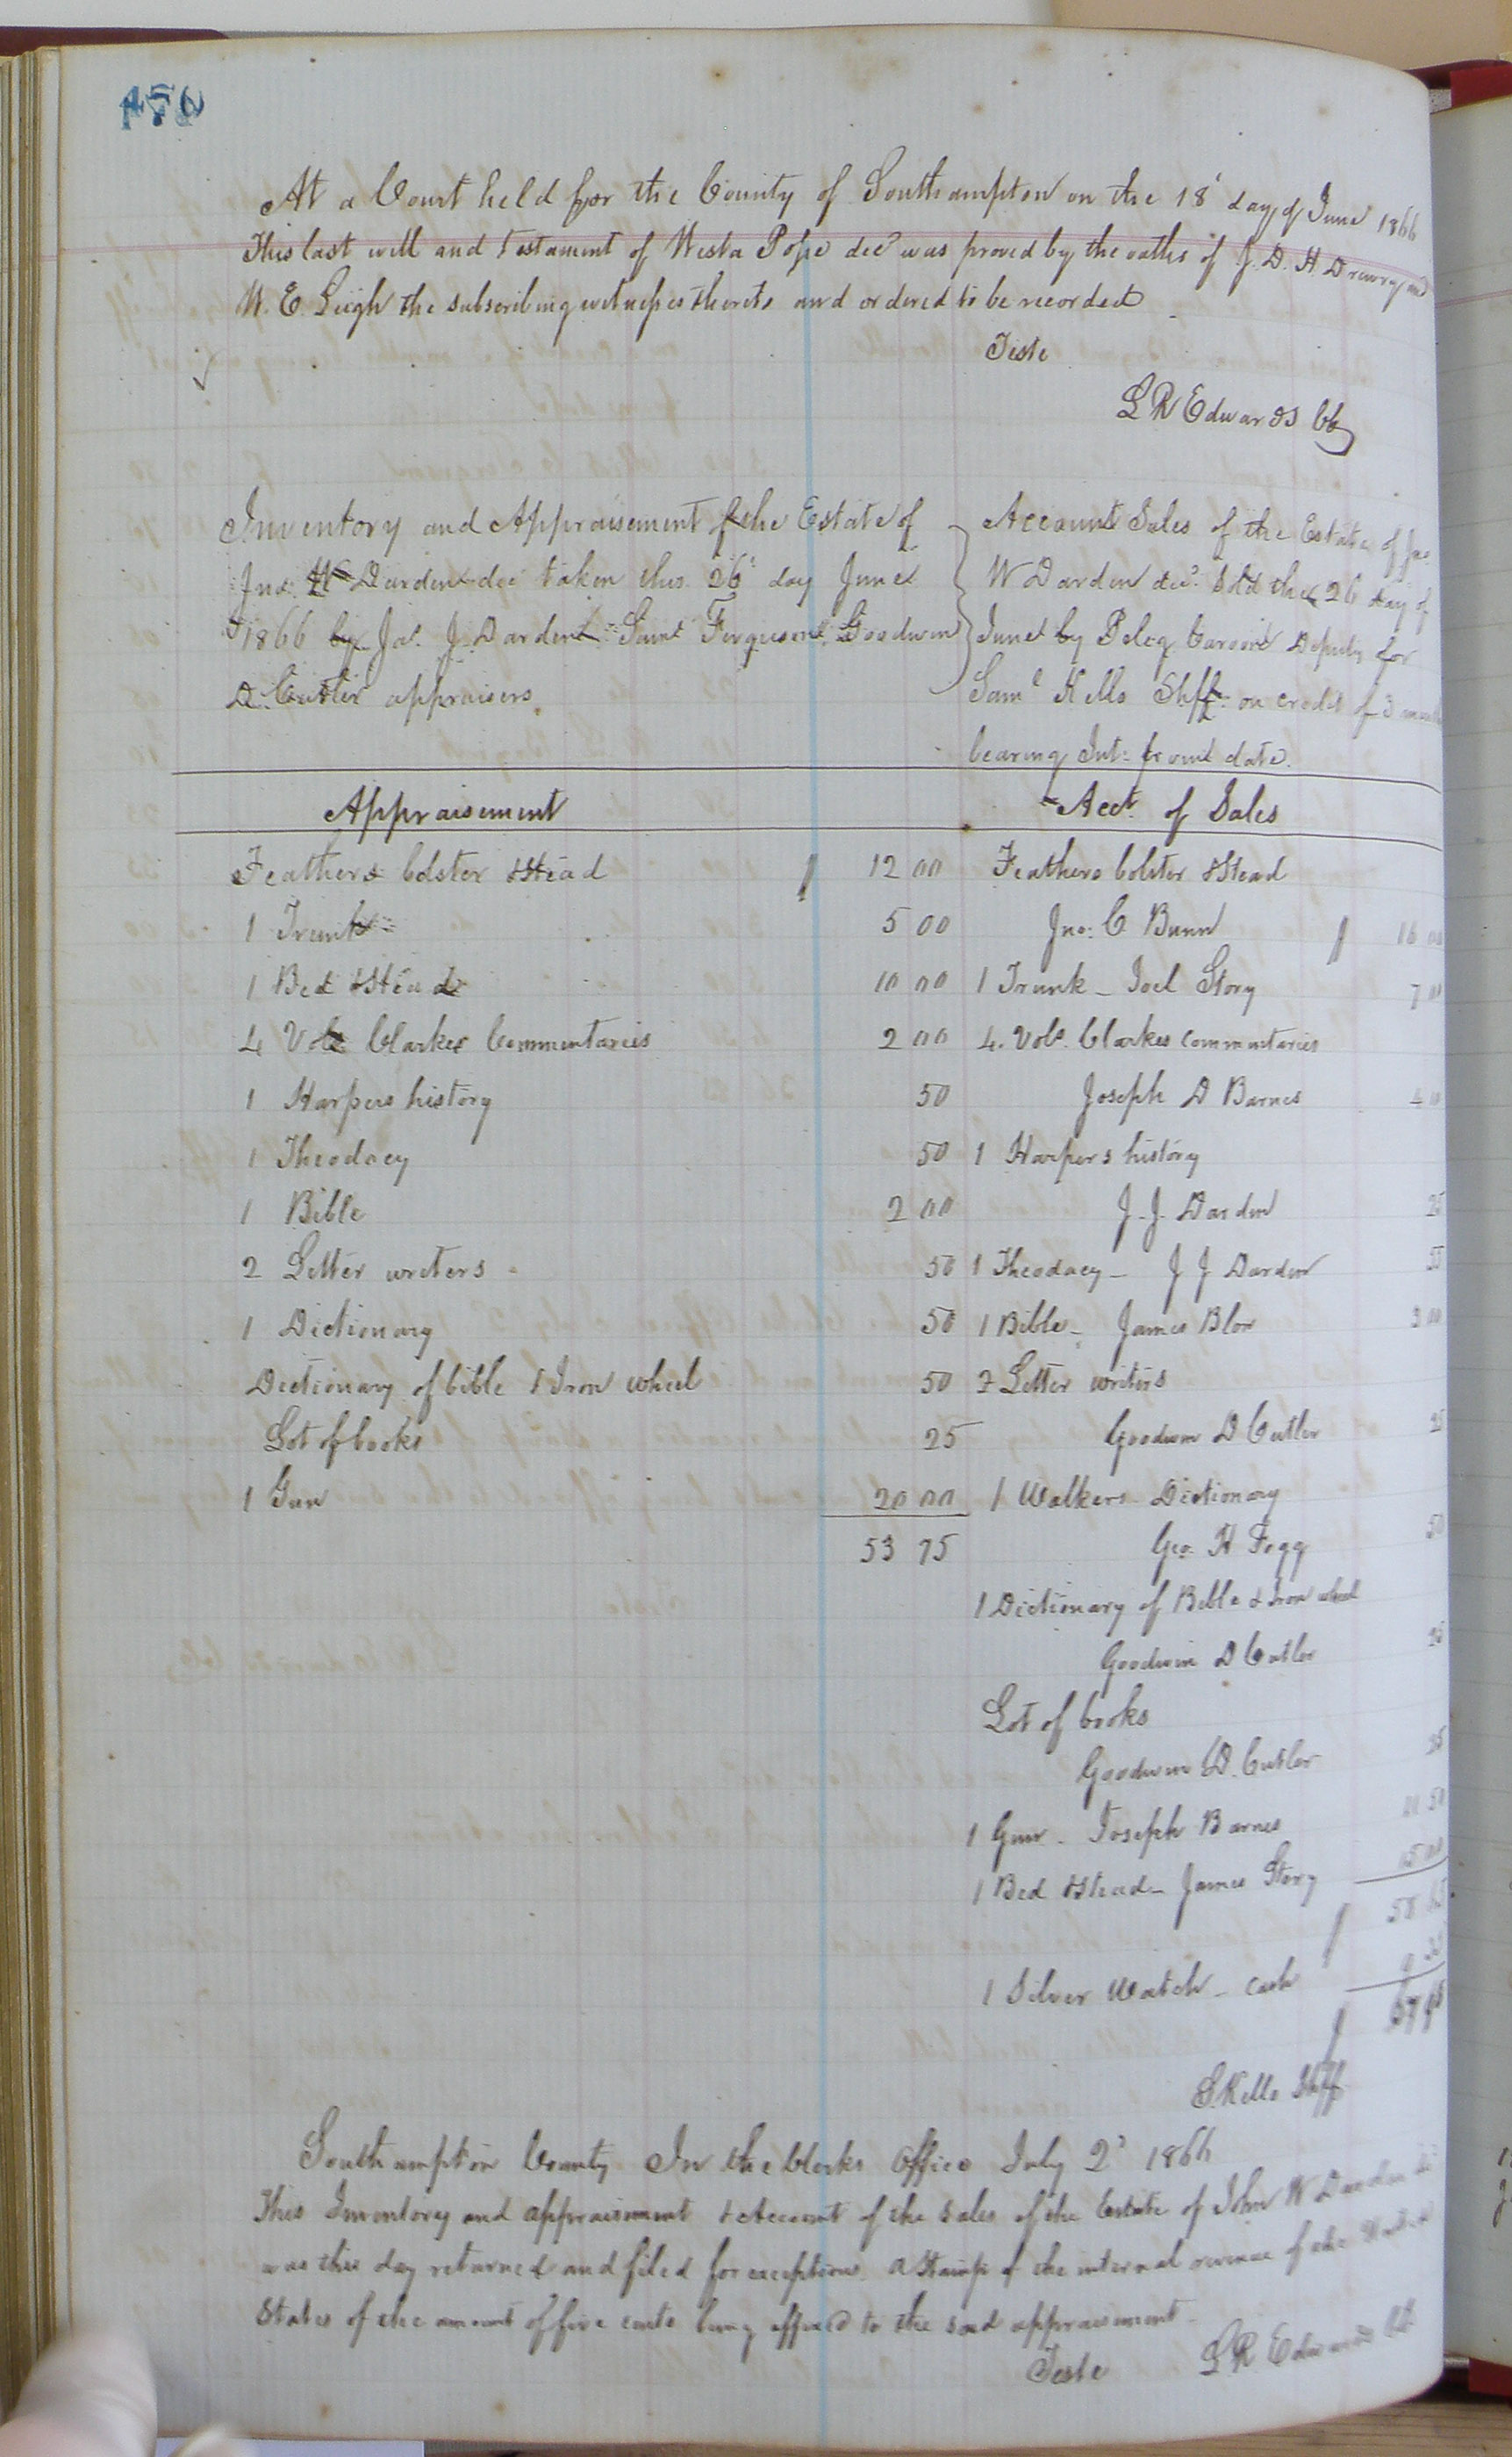 At a Court held for the County of Southampton on the 18' day of June 1866
This last will and testament of Westa Pope decd was proved by the oaths of J. D. H. Drewry and
W. E. Leigh the subscribing witnesses thereto and ordered to be recorded
Teste
L R Edwards Clk
Inventory and Appraisement of the Estate of
Jno. W Darden dec taken this 26' day June
1866 by Jas. J. Darden Saml Ferguson Goodwin
D. Cutler appraisers
Account Sales of the Estate of Jno
W Darden decd. Sold the 26 day of
June by Peleg Deputy for
Saml Kello Shff. on credit of 3 months
bearing Int. from date.
Appraisement
Acct. of Sales
Feathers bolster & Stead 12 00
1 Trunk 5 00
1 Bed & Stead 10 00
4 Vols Clarkes Commentaries 2 00
1 Harpers history 50
1 Theodocy 50
1 Bible 2 00
2 Letter writers 50
1 Dictionary 50
Dictionary of bible & Iron wheel 50
Lot of books 25
1 Gun 20 00
53 75
Feathers bolster & Stead
Jno. C Bunn 16 00
1 Trunk - Joel Story 7 00
4. Vols. Clarkes commentaries
Joseph D Barnes 4 00
1 Harpers history
J. J. Darden 25
1 Theodocy - J J Darden
1 Bible - James Blow 3 00
2 Letter writers
Goodwin D Cutler 25
1 Walkers Dictionary
Geo. H Fogg 50
1 Dictionary of Bible & Iron wheel
Goodwin D Cutler
Lot of books
Goodwin D. Cutler 25
1 Gun - Joseph Barnes
1 Bed & Stead - James Story
1 Silver Watch - cash
S. Kello Shff
Southampton County In the Clerks Office July 2d 1866
This Inventory and appraisement & Account of the sales of the Estate of John W Darden
was this day returned and filed for exceptions. A Stamp of the internal revenue of the United
States of the amount of five cents being affixed to the said appraisement.
Teste L R Edwards Clk